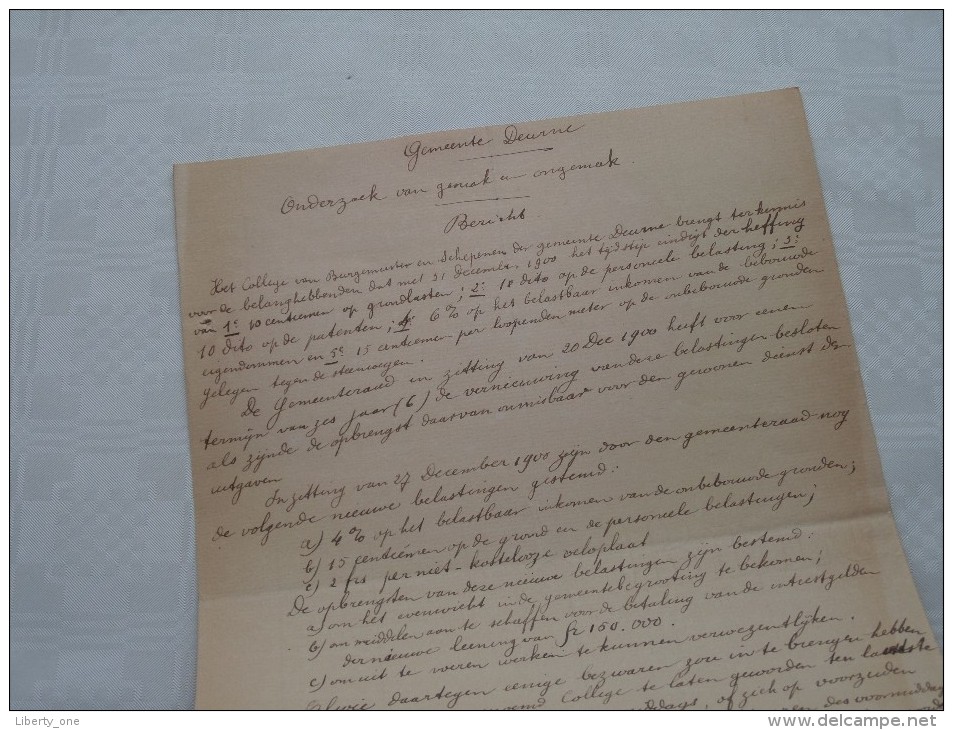 Gemeente Deurne
Onderzoek van gemak en ongemak.
Bericht.
Het College van Burgemeester en Schepenen der gemeente Deurne brengt ter kennis
voor de belanghebbenden dat met 31 december 1900 het tijdstip eindigt der heffing
van 1e 10 centiemen op grondlasten; 2e 10 dito op de personeele belasting; 3e
10 dito op de patenten; 4e 6% op het belastbaar inkomen van de bebouwde
eigendommen en 5e 15 centiemen per loopenden meter op de onbebouwde gronden
gelegen tegen de steenwegen.
De Gemeenteraad in zitting van 20 Dec 1900 heeft voor eenen
termijn van zes jaar (6) de vernieuwing van deze belastingen besloten
als zijnde de opbrengst daarvan onmisbaar voor den gewonen dienst der
uitgaven
In zitting van 27 December 1900 zijn door den gemeenteraad nog
de volgende nieuwe belastingen gestemd:
a) 4% op het belastbaar inkomen van de onbebouwde gronden;
b) 15 centiemen op de grond en de personeele belastingen;
c) 2 frs per niet-kostelooze veloplaat
De opbrengsten van deze nieuwe belastingen zijn bestemd:
a) om het evenwicht in de gemeentebegrooting te bekomen;
b) om middelen aan te schaffen voor de betaling van de intrestgelden
der nieuwe leening van fr 150.000.
c) om uit te voeren werken te kunnen verwezentlijken.
Alwie daartegen eenige bezwaren zou in te brengen hebben
College te laten geworden ten laatste
middags, of zich op voorzeiden
uren des voormiddag
Liberty_one
delcampe.net